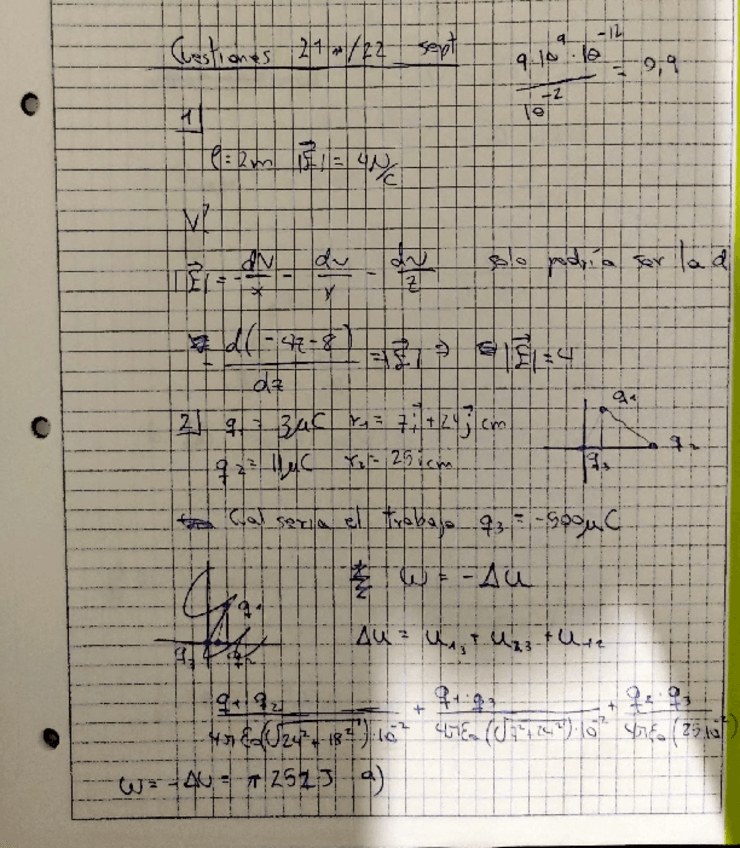 Cuestiones 21/22 sept
9·10^9·10^-12 / 10^-2 = 0,9
1]
l = 2m |E⃗| = 4N/C
V?
|E⃗| = -dV/x - dv/y - dv/z solo podría ser la d
- d(-4z-8)/dz = |E⃗| ⇒ |E⃗| = 4
2] q1 = 3μC r1 = 7i⃗ + 24j⃗ cm
q2 = 11μC r2 = 25i cm
q1 q2 q3
Cual seria el trabajo q3 = -500μC
W = -ΔU
q1 q3 q2
ΔU = U13 + U23 + U12
q1 q2 / 4πε0(√24²+18²)·10^-2 + q1·q3 / 4πε0(√7²+24²)·10^-2 + q2·q3 / 4πε0(25·10^-2)
W = -ΔU = 252J a)